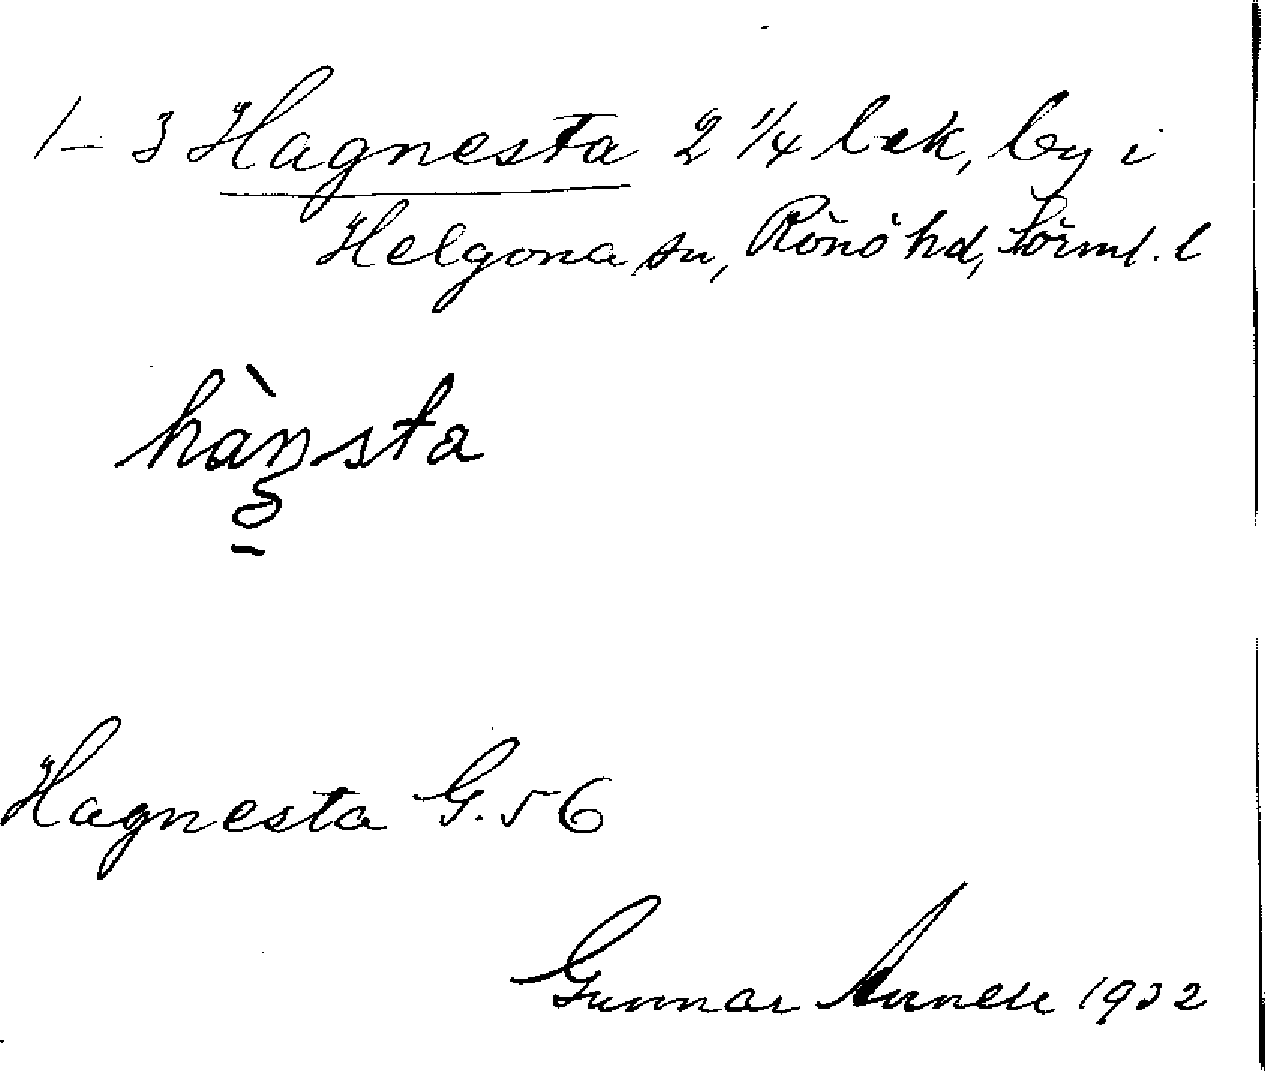 1-3 Hagnesta 2 1/4 bek, by i
Helgona sn, Rönö hd, Sörml. l
hàgsta
Hagnesta G. 56
Gunnar 1932